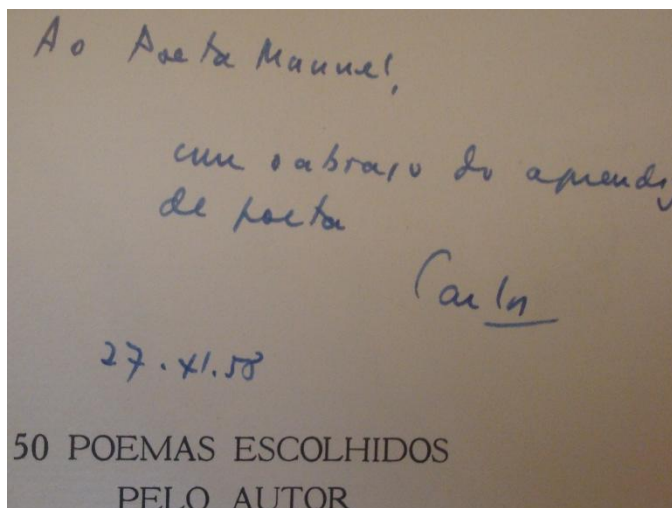 Ao Poeta Manuel,
com o abraço do aprendiz
de poeta
Carlos
27.XI.58
50 POEMAS ESCOLHIDOS
PELO AUTOR